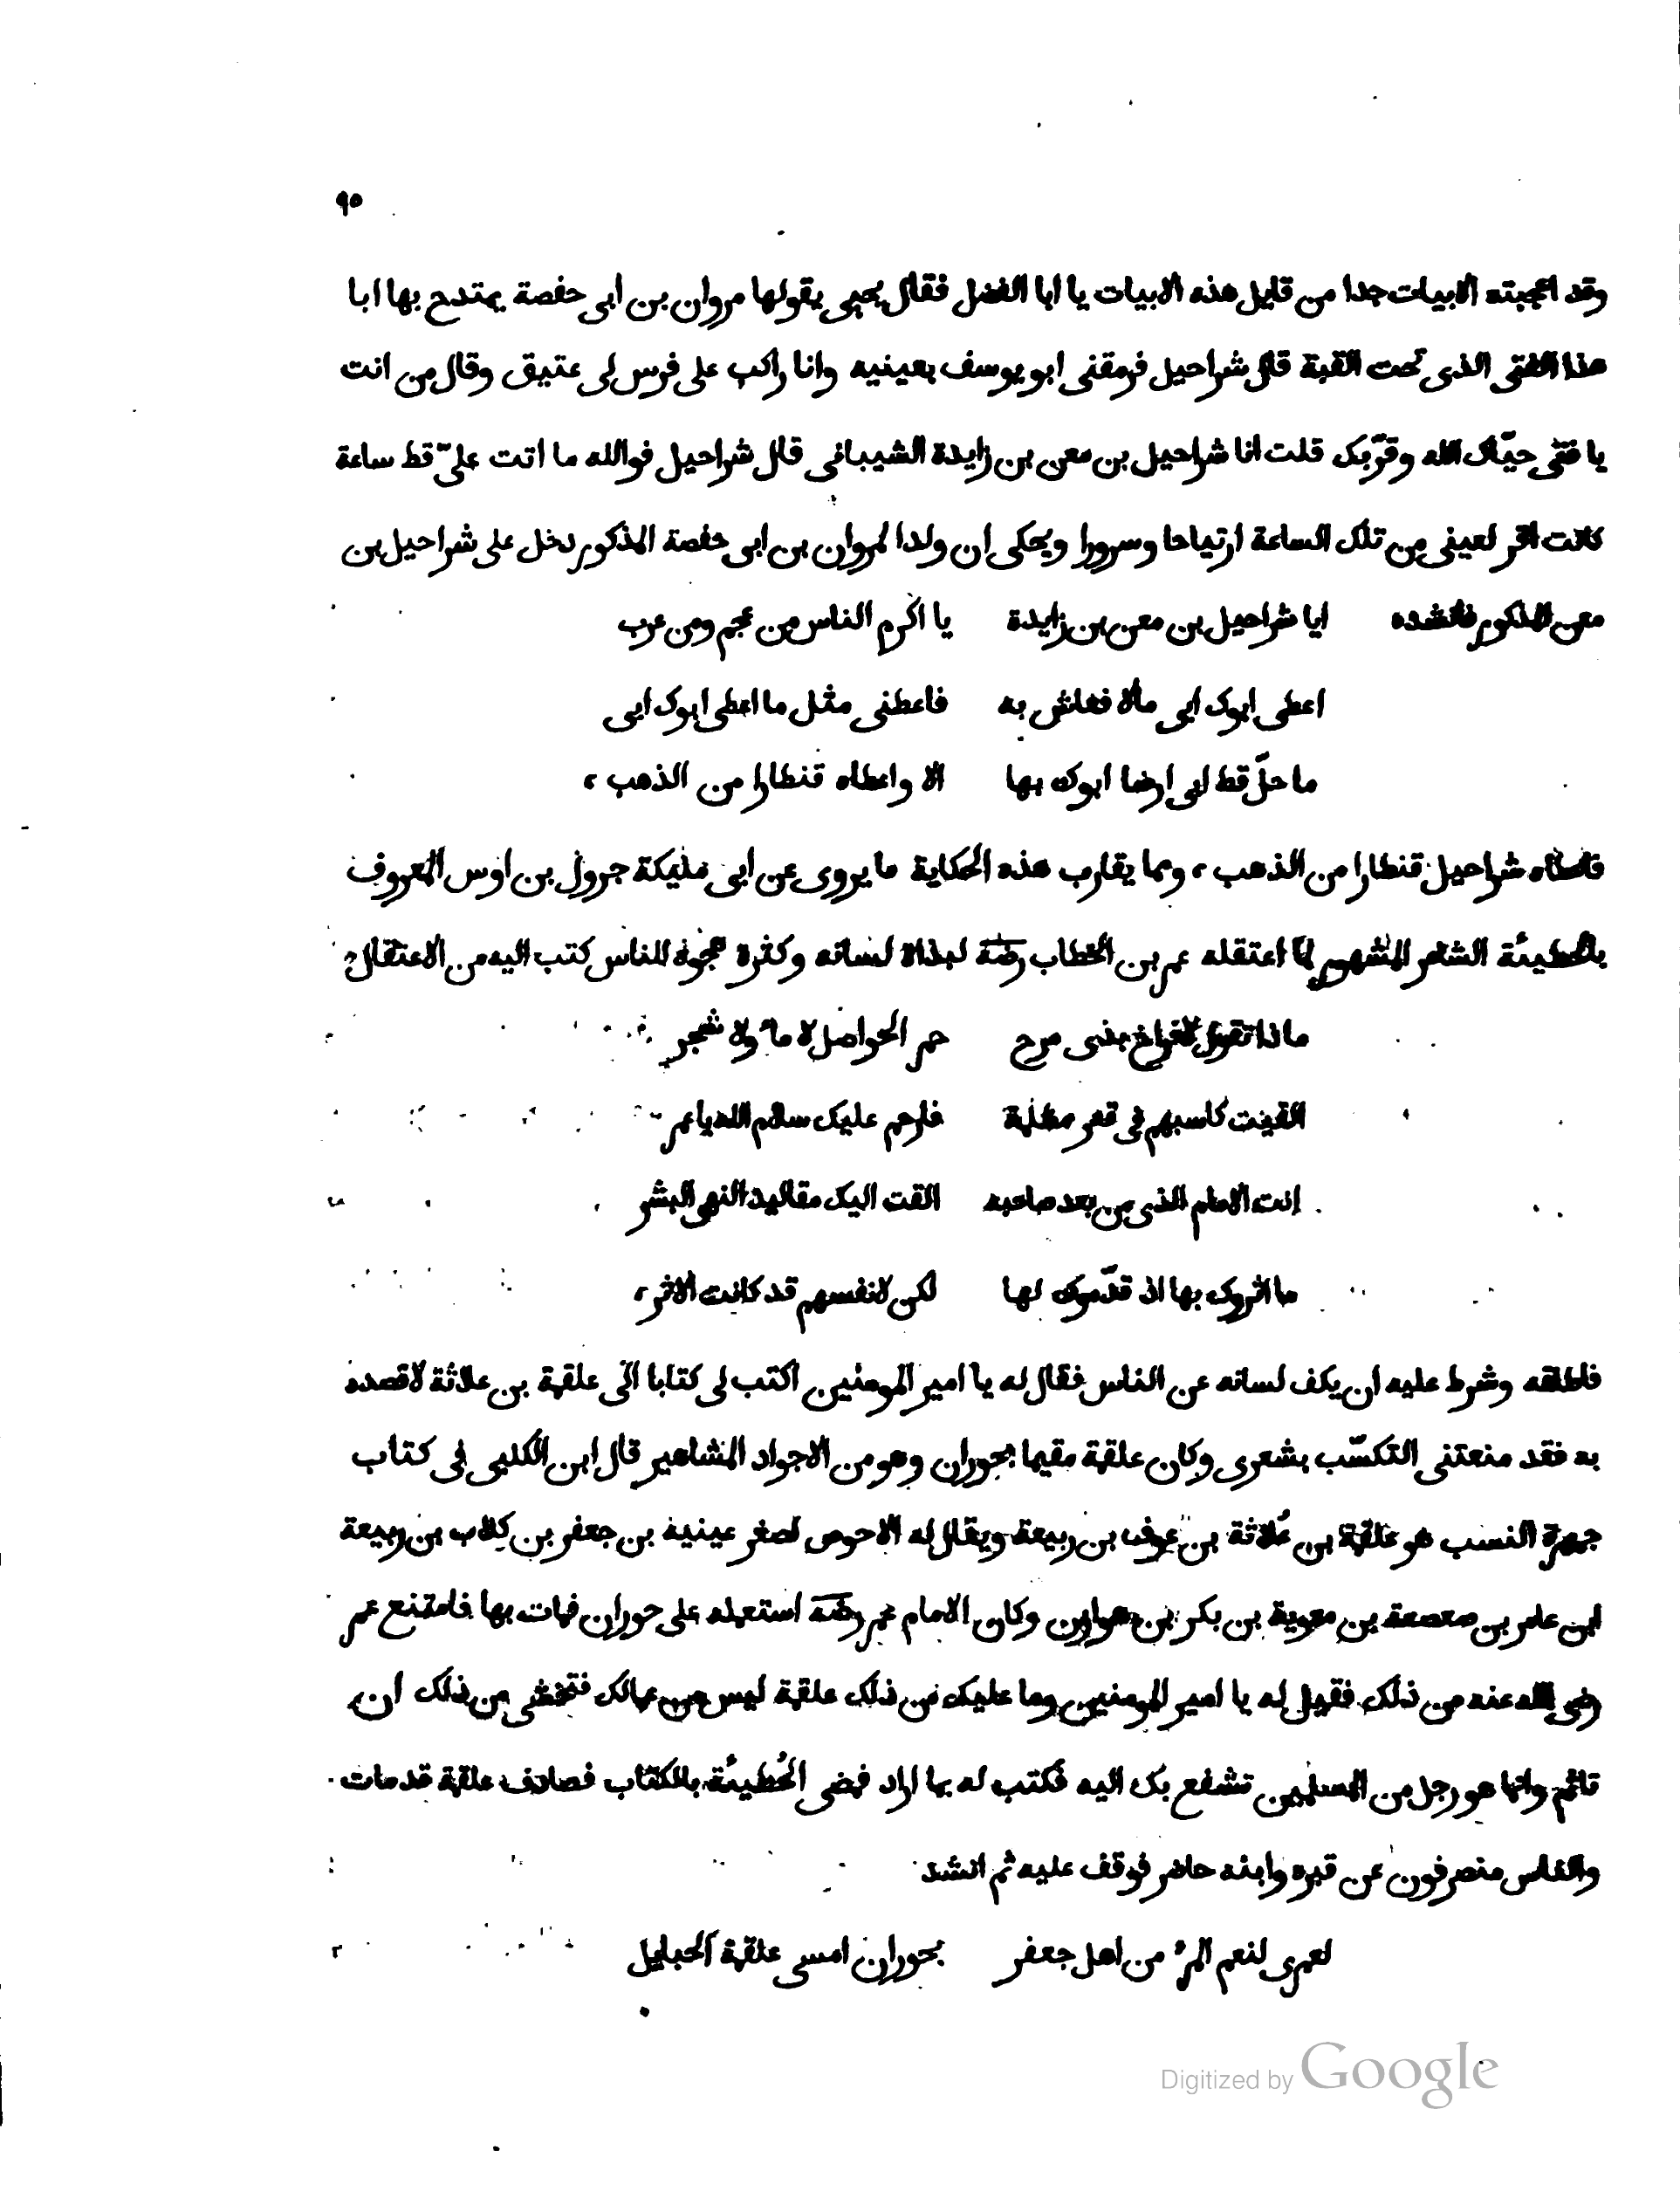 ٩٥
وقد اعجبته الابيات جدا من قايل هذه الابيات يا ابا الفضل فقال يحيى يقولها مروان بن ابى حفصة يمتدح بها ابا
هذا الفتى الذى تحت القبة قال شراحيل فرمقنى ابو يوسف بعينيه وانا راكب على فرس لى عتيق وقال من انت
يا فتى حيّاك الله وقرّبك قلت انا شراحيل بن معن بن زايدة الشيبانى قال شراحيل فوالله ما اتت علىّ قط ساعة
كانت اقر لعينى من تلك الساعة ارتياحا وسرورا ويحكى ان ولدا لمروان بن ابى حفصة المذكور دخل على شراحيل بن
معن المذكور فانشده ايا شراحيل بن معن بن زايدة يا اكرم الناس من عجم ومن عرب
اعطى ابوك ابى مالا فعاش به فاعطنى مثل ما اعطى ابوك ابى
ما حلّ قط ابى ارضا ابوك بها الا واعطاه قنطارا من الذهب ،
فاعطاه شراحيل قنطارا من الذهب ، ومما يقارب هذه الحكاية ما يروى عن ابى مليكة جرول بن اوس المعروف
بالحطيئة الشاعر المشهور لمّا اعتقله عمر بن الخطاب رضّه لبذاة لسانه وكثرة هجوه للناس كتب اليه من الاعتقال
ماذا تقول لافراخ بذى مرح حمر الحواصل لا ماء ولا شجر
القيت كاسبهم فى قعر مظلمة فارحم عليك سلام الله يا عمر
انت الامام الذى من بعد صاحبه القت اليك مقاليد النهى البشر
ما اثروك بها اذ قدّموك لها لكن لانفسهم قد كانت الاثر ،
فاطلقه وشرط عليه ان يكف لسانه عن الناس فقال له يا امير المومنين اكتب لى كتابا الى علقمة بن علاثة لاقصده
به فقد منعتنى التكسّب بشعرى وكان علقمة مقيما بحوران وهو من الاجواد المشاهير قال ابن الكلبى فى كتاب
جمهرة النسب هو علقمة بن عُلاثة بن عوف بن ربيعة ويقال له الاحوص لصغر عينيه بن جعفر بن كلاب بن ربيعة
ابن عامر بن صعصعة بن معوية بن بكر بن هوازن وكان الامام عمر رضّه استعمله على حوران فمات بها فامتنع عمر
رضى الله عنه من ذلك فقيل له يا امير المومنين وما عليك من ذلك علقمة ليس من عمالك فتخشى من ذلك ان
تاثم وانما هو رجل من المسلمين تشفع بك اليه فكتب له بما اراد فمضى الحُطيئة بالكتاب فصادف علقمة قد مات
والناس منصرفون عن قبره وابنه حاضر فوقف عليه ثم انشد
لعمرى لنعم المرء من اهل جعفر بحوران امسى علقمة الحبايل
Digitized by Google